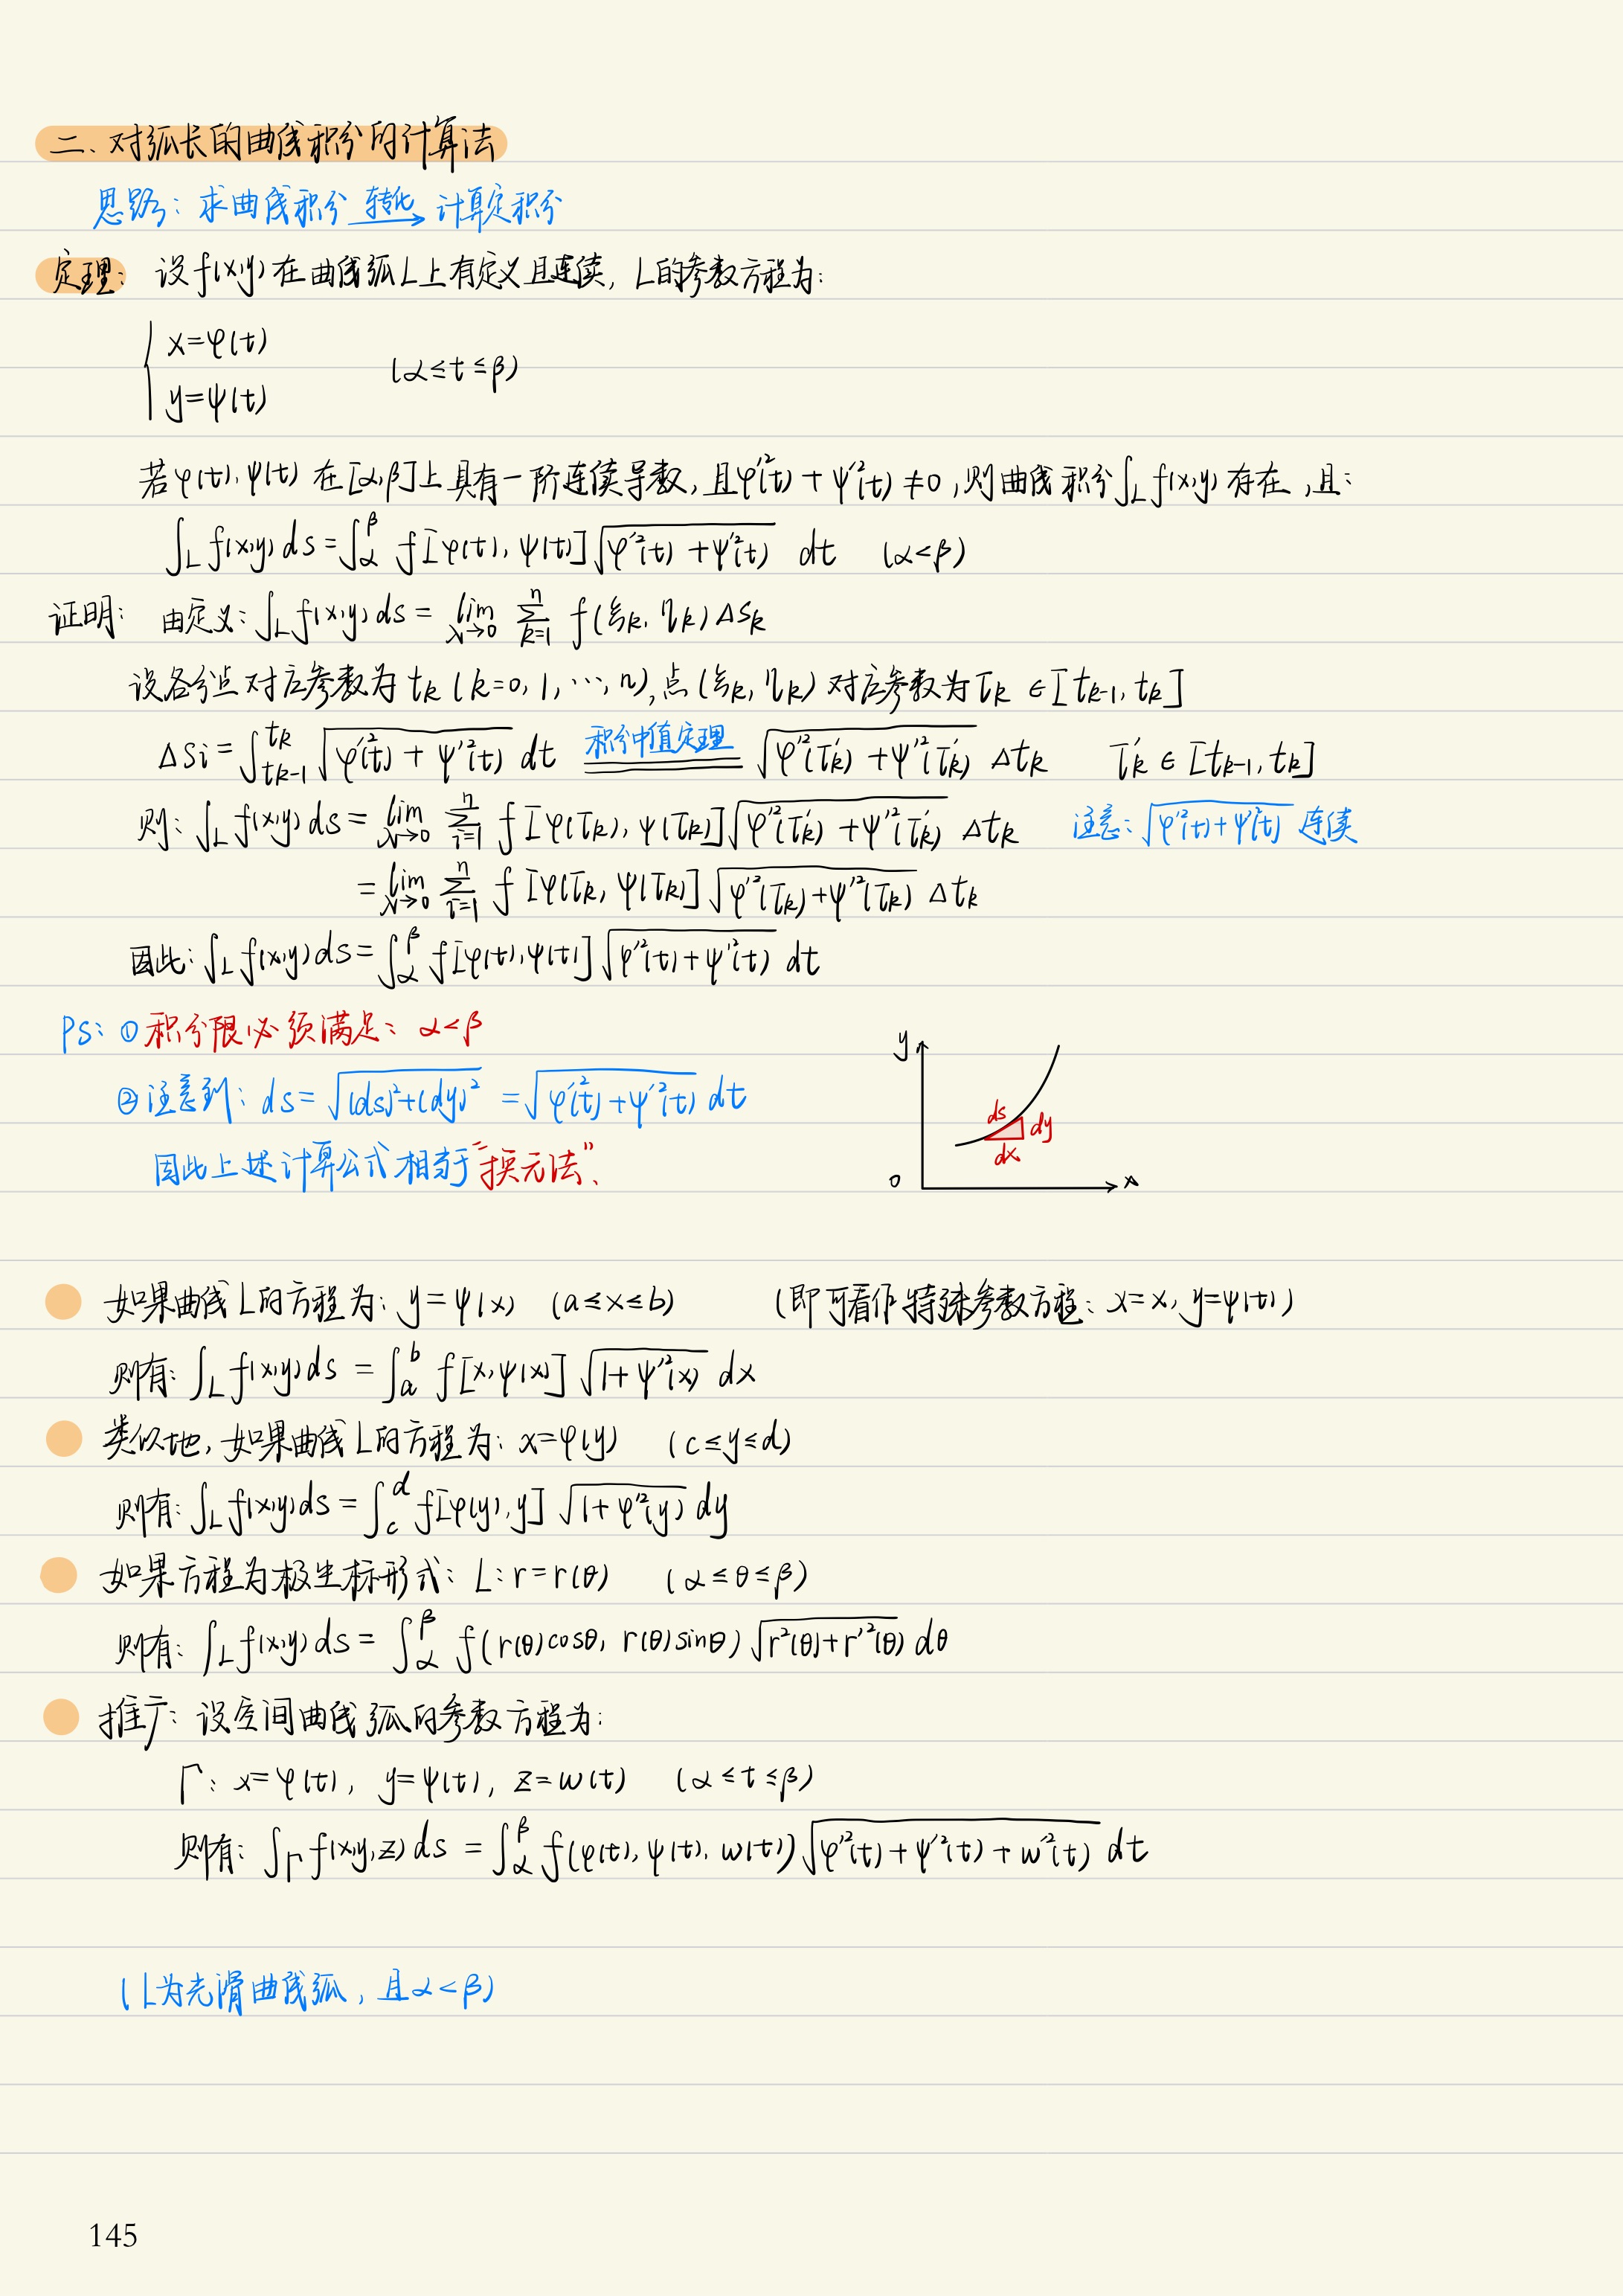 二、对弧长的曲线积分的计算法
思路：求曲线积分 转化→ 计算定积分
定理：设f(x,y)在曲线弧L上有定义且连续，L的参数方程为：
{ x=φ(t)
y=ψ(t) (α≤t≤β)
若φ(t),ψ(t) 在[α,β]上具有一阶连续导数，且φ'²(t)+ψ'²(t)≠0，则曲线积分∫_L f(x,y) 存在，且：
∫_L f(x,y) ds=∫_α^β f[φ(t),ψ(t)]√(φ'²(t)+ψ'²(t)) dt (α<β)
证明：由定义：∫_L f(x,y) ds= lim_{λ→0} Σ_{k=1}^n f(ξk,ηk)ΔSk
设各分点对应参数为 tk (k=0,1,…,n),点(ξk,ηk)对应参数为τk ∈[tk-1,tk]
ΔSi=∫_{tk-1}^{tk} √(φ'²(t)+ψ'²(t)) dt 积分中值定理 √(φ'²(τ'k)+ψ'²(τ'k)) Δtk τ'k ∈[tk-1,tk]
则：∫_L f(x,y) ds= lim_{λ→0} Σ_{i=1}^n f[φ(τk),ψ(τk)]√(φ'²(τ'k)+ψ'²(τ'k)) Δtk 注意：√(φ'²(t)+ψ'²(t)) 连续
=lim_{λ→0} Σ_{i=1}^n f[φ(τk,ψ(τk)]√(φ'²(τk)+ψ'²(τk)) Δtk
因此：∫_L f(x,y) ds=∫_α^β f[φ(t),ψ(t)]√(φ'²(t)+ψ'²(t)) dt
PS：① 积分限必须满足：α<β
②注意到：ds=√((ds)²+(dy)²) =√(φ'²(t)+ψ'²(t)) dt
因此上述计算公式相当于“换元法”、
y
ds
dy
dx
0
x
如果曲线L的方程为：y=ψ(x) (a≤x≤b) (即可看作特殊参数方程：x=x,y=ψ(t))
则有：∫_L f(x,y) ds =∫_a^b f[x,ψ(x)]√(1+ψ'²(x)) dx
类似地，如果曲线L的方程为：x=φ(y) (c≤y≤d)
则有：∫_L f(x,y) ds=∫_c^d f[φ(y),y]√(1+φ'²(y)) dy
如果方程为极坐标形式：L:r=r(θ) (α≤θ≤β)
则有：∫_L f(x,y) ds=∫_α^β f(r(θ)cosθ, r(θ)sinθ)√(r²(θ)+r'²(θ)) dθ
推广：设空间曲线弧的参数方程为：
Γ：x=φ(t), y=ψ(t), z=w(t) (α≤t≤β)
则有：∫_Γ f(x,y,z) ds =∫_α^β f(φ(t),ψ(t),w(t))√(φ'²(t)+ψ'²(t)+w'²(t)) dt
(L为光滑曲线弧，且α<β)
145